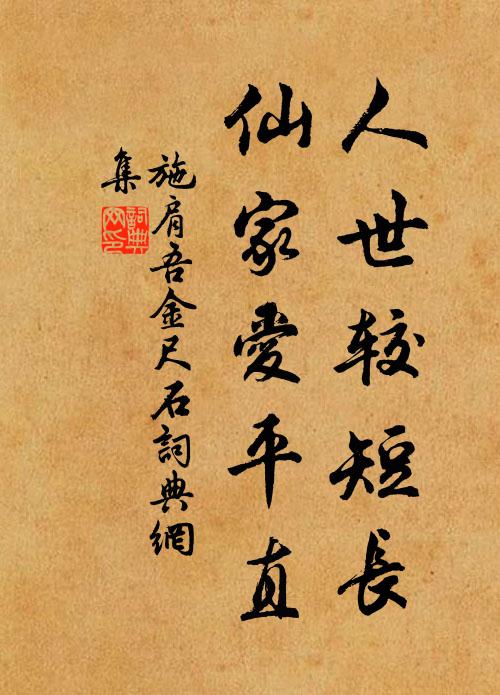 人世较短長
仙家愛平直
施肩吾金尺石詞典網
集
詞典网印